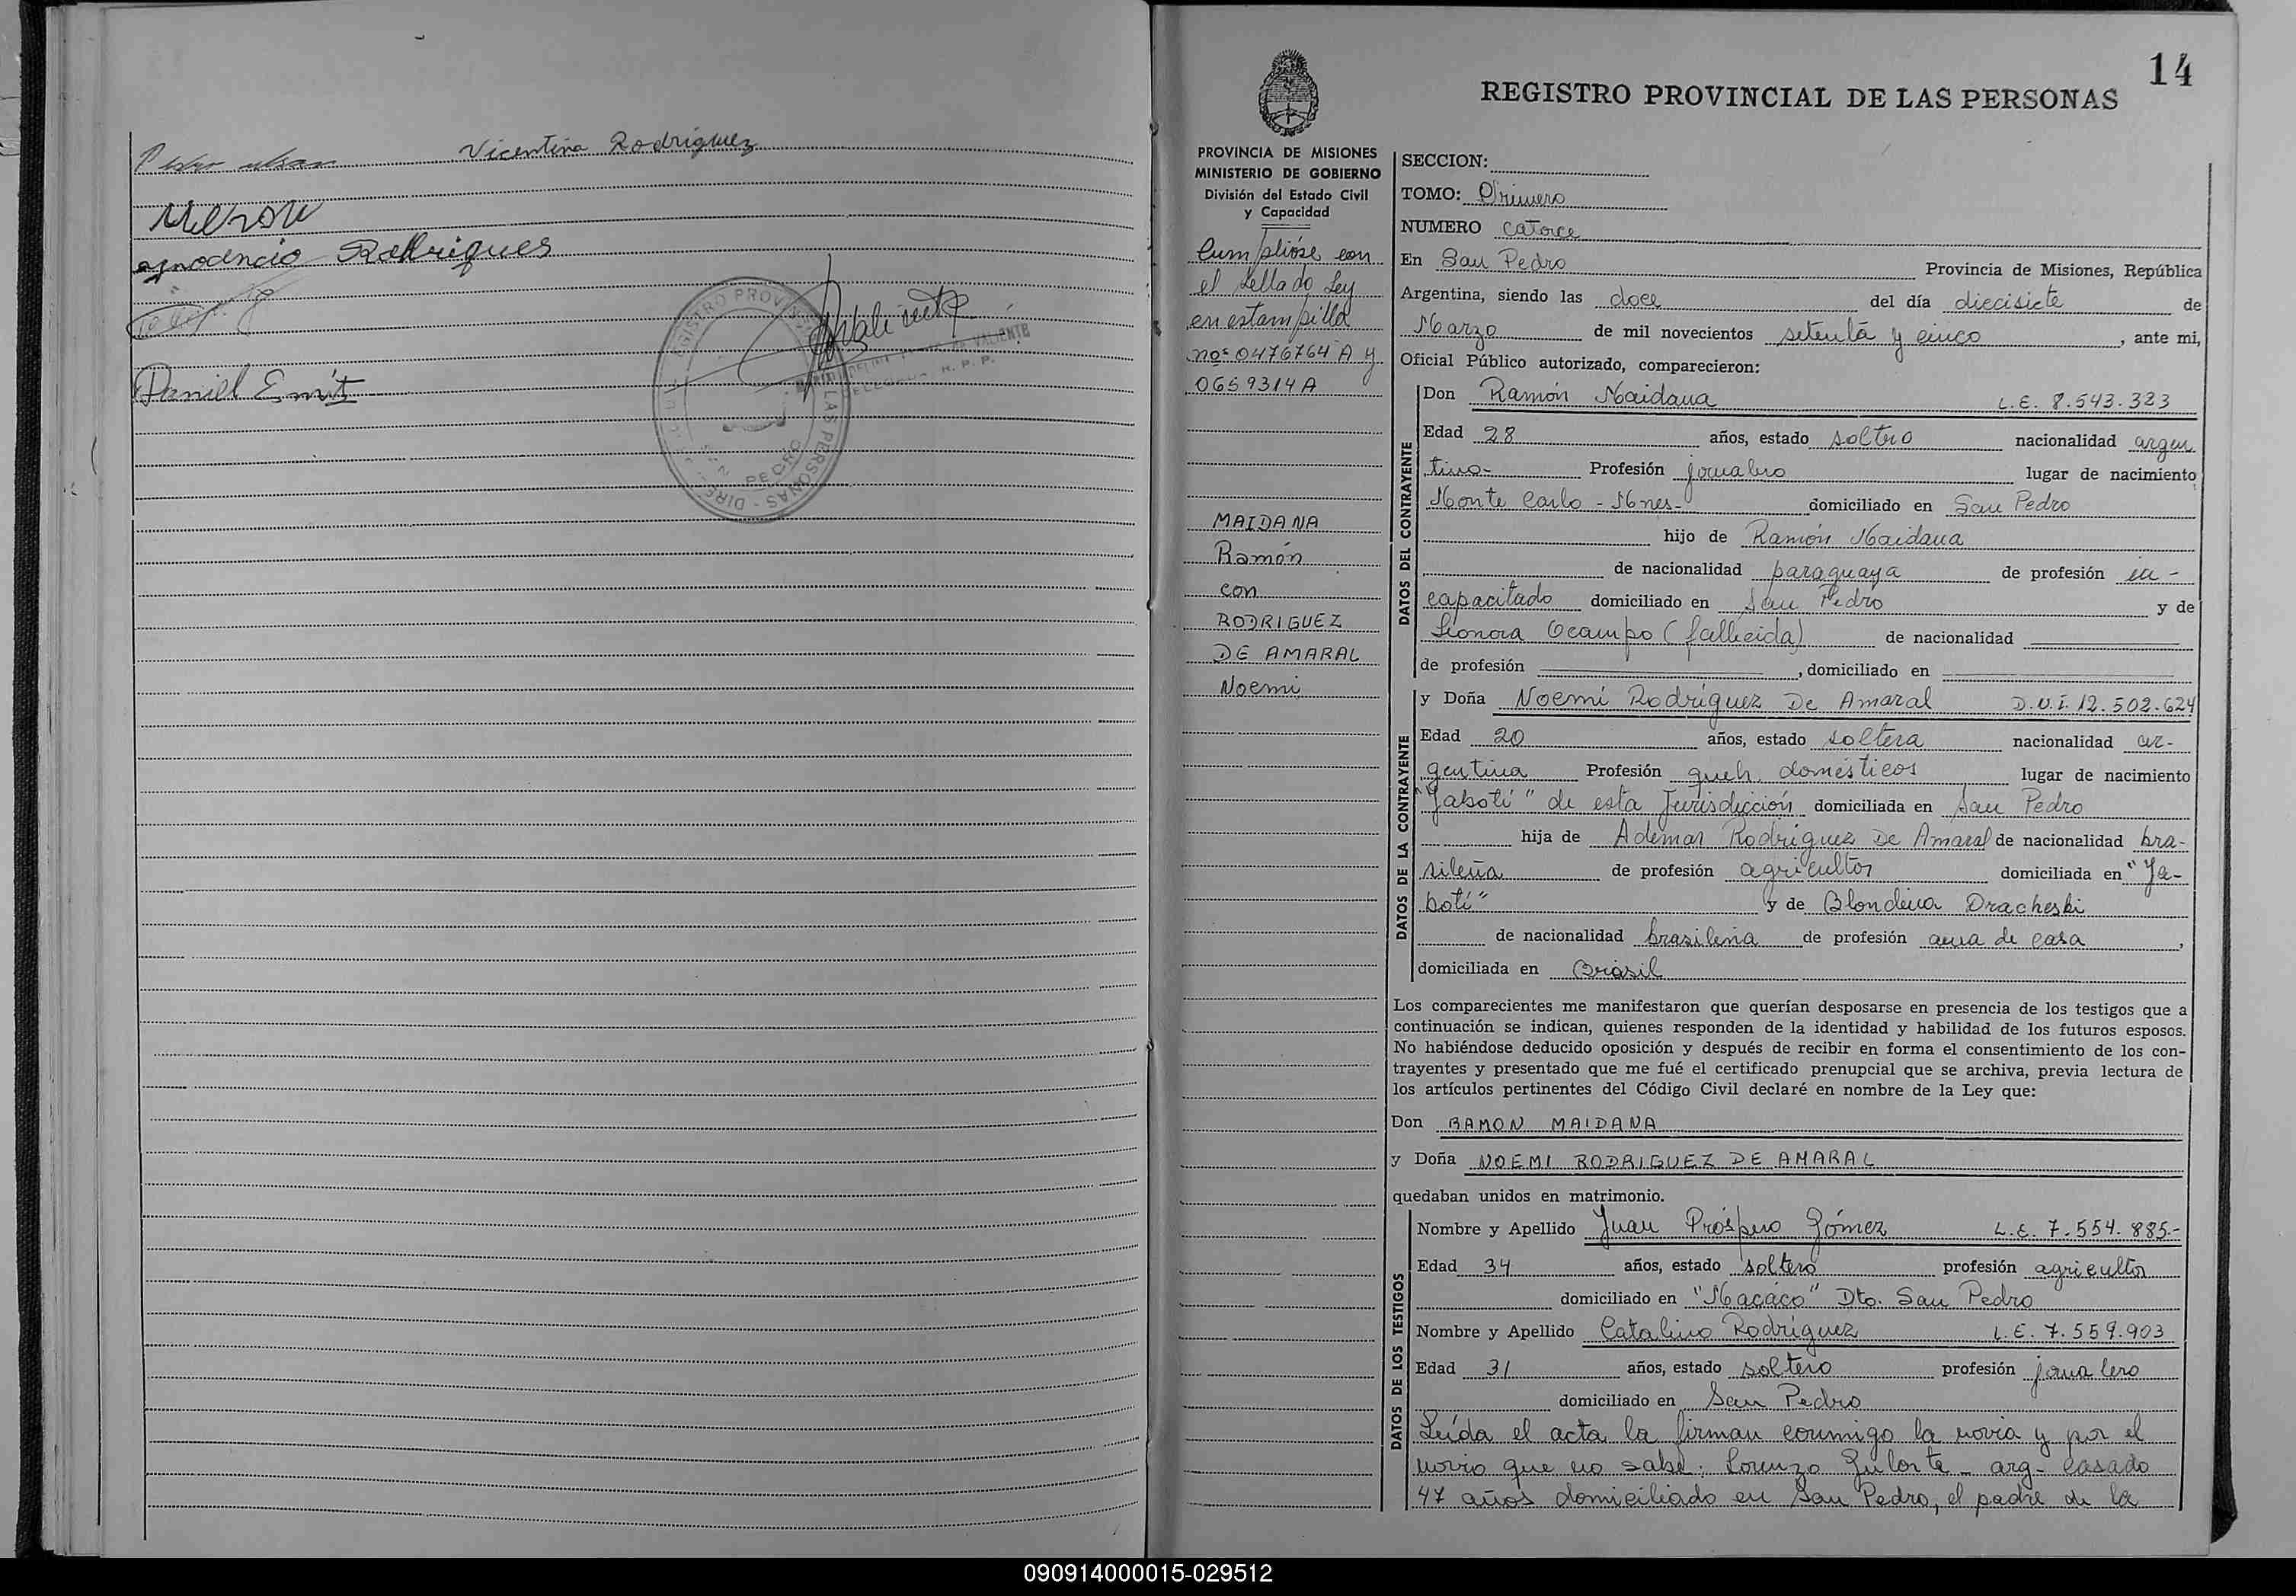 Vicentina Rodríguez
Nelson
Rodrigues
Daniel
14
REGISTRO PROVINCIAL DE LAS PERSONAS
PROVINCIA DE MISIONES
MINISTERIO DE GOBIERNO
División del Estado Civil
y Capacidad
Cumplióse con
el sellado Ley
en estampilla
nos 0476764 A y
0659314 A
MAIDANA
Ramón
con
RODRIGUEZ
DE AMARAL
Noemi
SECCION:
TOMO: Primero
NUMERO catorce
En San Pedro Provincia de Misiones, República
Argentina, siendo las doce del día diecisiete de
Marzo de mil novecientos setenta y cinco, ante mi,
Oficial Público autorizado, comparecieron:
DATOS DEL CONTRAYENTE
Don Ramón Maidana L.E. 8.543.323
Edad 28 años, estado soltero nacionalidad argen
tino- Profesión jornalero lugar de nacimiento
Monte Carlo - Mnes- domiciliado en San Pedro
hijo de Ramón Maidana
de nacionalidad paraguaya de profesión in-
capacitado domiciliado en San Pedro y de
Leonora Ocampo (fallecida) de nacionalidad
de profesión , domiciliado en
DATOS DE LA CONTRAYENTE
y Doña Noemí Rodríguez De Amaral D.N.I. 12.502.624
Edad 20 años, estado soltera nacionalidad ar-
gentina Profesión queh. domésticos lugar de nacimiento
"Yabotí" de esta Jurisdicción domiciliada en San Pedro
hija de Ademar Rodriguez De Amaral de nacionalidad bra-
sileña de profesión agricultor domiciliada en "Ya-
botí" y de Blondina Dracheski
de nacionalidad brasileña de profesión ama de casa,
domiciliada en Brasil
Los comparecientes me manifestaron que querían desposarse en presencia de los testigos que a
continuación se indican, quienes responden de la identidad y habilidad de los futuros esposos.
No habiéndose deducido oposición y después de recibir en forma el consentimiento de los con-
trayentes y presentado que me fué el certificado prenupcial que se archiva, previa lectura de
los artículos pertinentes del Código Civil declaré en nombre de la Ley que:
Don RAMON MAIDANA
y Doña NOEMI RODRIGUEZ DE AMARAL
quedaban unidos en matrimonio.
DATOS DE LOS TESTIGOS
Nombre y Apellido Juan Próspero Gómez L.E. 7.554.885.-
Edad 34 años, estado soltero profesión agricultor
domiciliado en "Macaco" Dto. San Pedro
Nombre y Apellido Catalino Rodríguez L.E. 7.559.903
Edad 31 años, estado soltero profesión jornalero
domiciliado en San Pedro
Leída el acta la firman conmigo la novia y por el
novio que no sabe: Lorenzo - arg- casado
47 años domiciliado en San Pedro, el padre de la
090914000015-029512